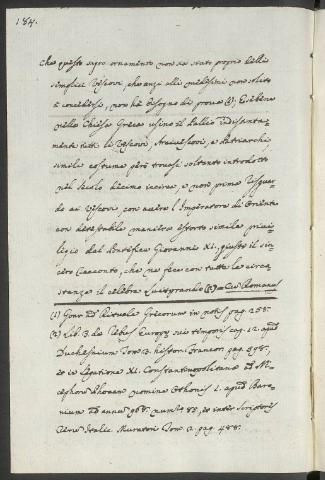 184.
che questo sagro ornamento non sia stato proprio delli
semplici Vescovi, che anzi alli medesimi non solito
a concedersi, non hà bisogno di prova (1). E sebene
nella Chiesa Greca usino il Pallio
tutti li Vescovi, Arcivescovi, e Patriarchi,
simile costume però trovasi soltanto introdotto
nel Secolo decimo incirca, e non prima
ai Vescovi con avere l'Imperatore di Oriente
con detestabile maniera estorto simile privi
legio dal Pontefice Giovanni XI. giusto il sin
cero racconto, che ne fece con tutte le circo
stanze il celebre Luitprando (2) =
(1) Goar Rituale Grecorum in notis pag. 258.
(2) Lib. 3. de Rebus Europ. sui temporis cap. 12. apud
Duchesnium Tom. 3. histor. Francor. pag. 598.,
et in Legatione XI. Constantinopolitana
nomine Othonis I. apud Baro
nium ad annum 968. num. 85, et inter Scriptores
Rerum Italic. Muratori Tom. 2. pag. 488.